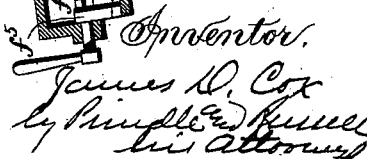 f⁵
Inventor.
James D. Cox
by Prindle and Russell
his Attorneys